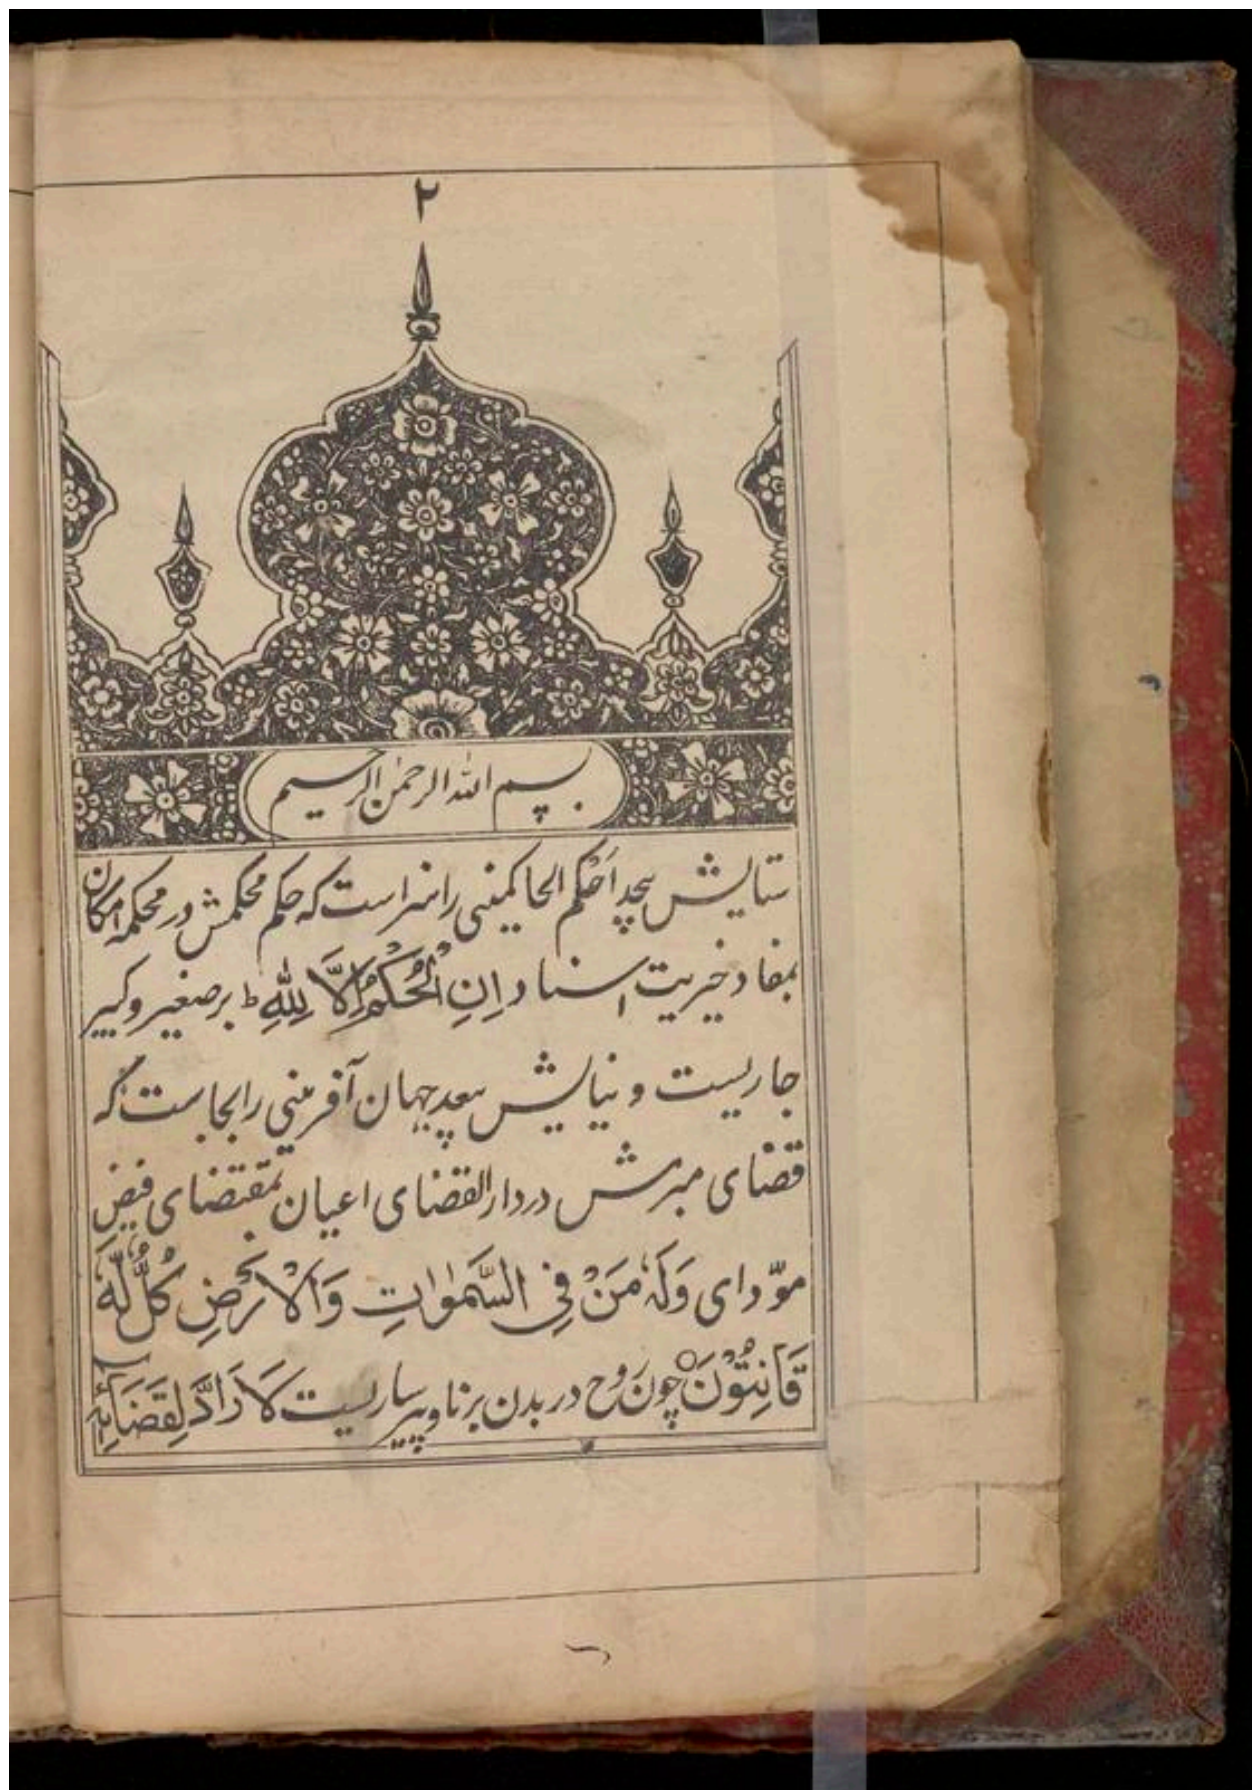 ۲
بسم الله الرحمن الرحیم
ستایش بیحد اَحْکم الحاکمینی را سزاست که حکم محکمش در محکمهٔ امکان
بمفاد خیریت اسناد اِنِ الْحُکْمُ اِلَّا لِلّٰهِ ط بر صغیر و کبیر
جاریست و نیایش بیعد جهان آفرینی را بجاست که
قضای مبرمش در دار القضای اعیان بمقتضای فیض
مودّای وَلَهٗ مَنْ فِی السَّمٰوٰاتِ وَالْاَرْضِ کُلٌّ لَّهٗ
قَانِتُوْنَ چون روح در بدن برنا و پیر ساریست لَا رَادَّ لِقَضَائِهٖ